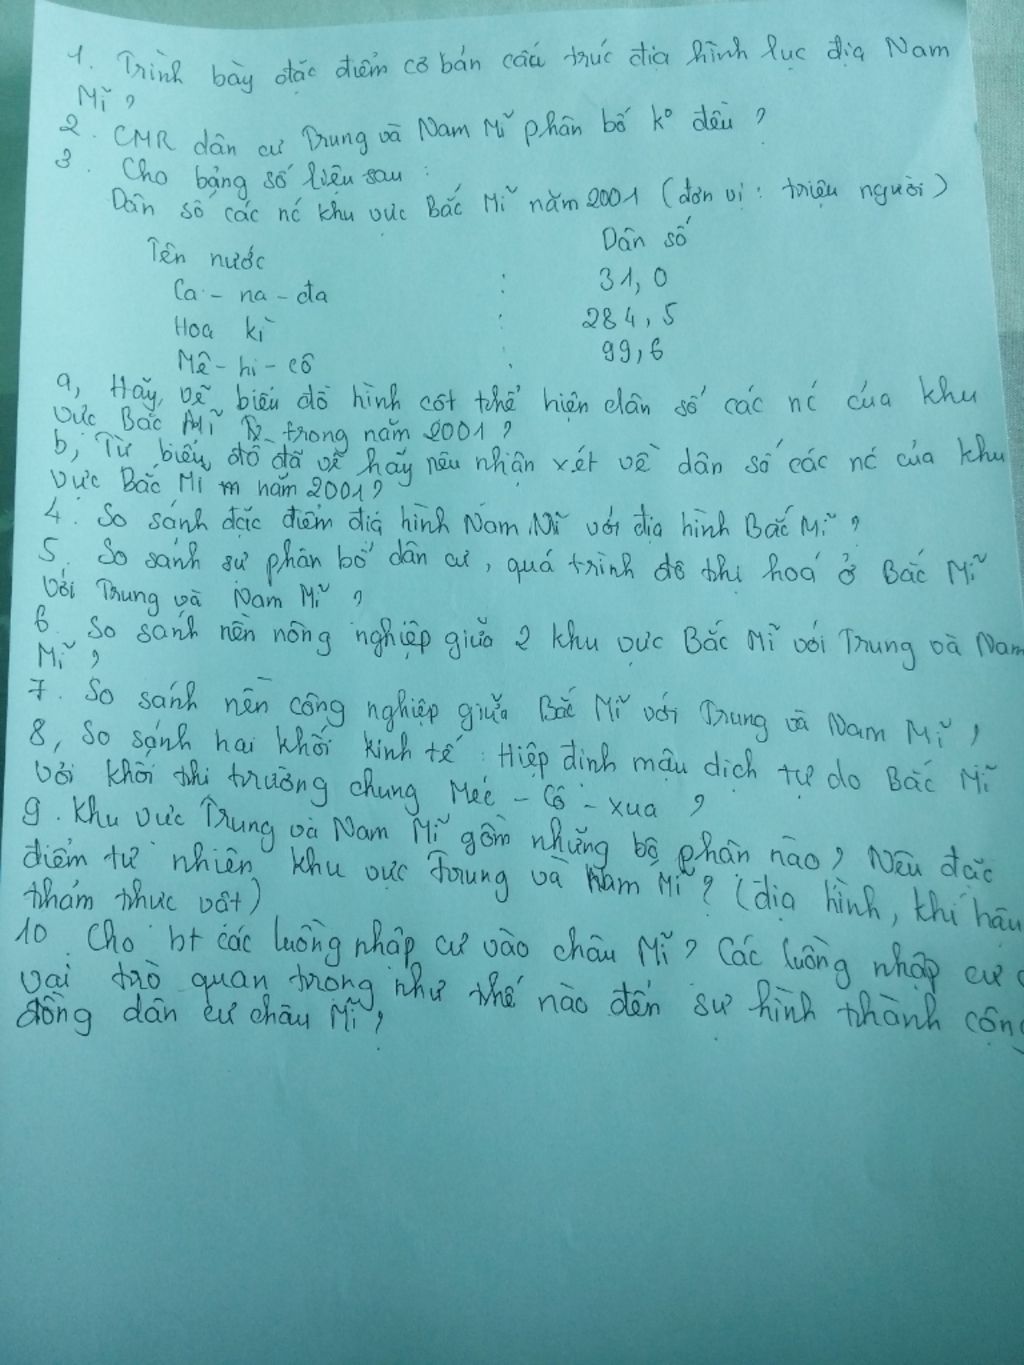 1. Trình bày đặc điểm cơ bản cấu trúc địa hình lục địa Nam
Mĩ ?
2. CMR dân cư Trung và Nam Mĩ phân bố k° đều ?
3. Cho bảng số liệu sau :
Dân số các nc khu vực Bắc Mĩ năm 2001 (đơn vị : triệu người)
Tên nước Dân số
Ca - na - đa : 31,0
Hoa kì : 284,5
Mê - hi - cô : 99,6
a, Hãy vẽ biểu đồ hình cột thể hiện dân số các nc của khu
vực Bắc Mĩ trong năm 2001 ?
b, Từ biểu đồ đã vẽ hãy nêu nhận xét về dân số các nc của khu
vực Bắc Mĩ năm 2001 ?
4. So sánh đặc điểm địa hình Nam Mĩ với địa hình Bắc Mĩ ?
5. So sánh sự phân bố dân cư, quá trình đô thị hoá ở Bắc Mĩ
với Trung và Nam Mĩ ?
6. So sánh nền nông nghiệp giữa 2 khu vực Bắc Mĩ với Trung và Nam
Mĩ ?
7. So sánh nền công nghiệp giữa Bắc Mĩ với Trung và Nam Mĩ ?
8, So sánh hai khối kinh tế : Hiệp định mậu dịch tự do Bắc Mĩ
với khối thị trường chung Méc - Cô - xua ?
9. Khu vực Trung và Nam Mĩ gồm những bộ phận nào ? Nêu đặc
điểm tự nhiên khu vực Trung và Nam Mĩ ? (địa hình, khí hậu
thảm thực vật)
10. Cho bt các luồng nhập cư vào châu Mĩ ? Các luồng nhập cư
vai trò quan trọng như thế nào đến sự hình thành cộng
đồng dân cư châu Mĩ ?